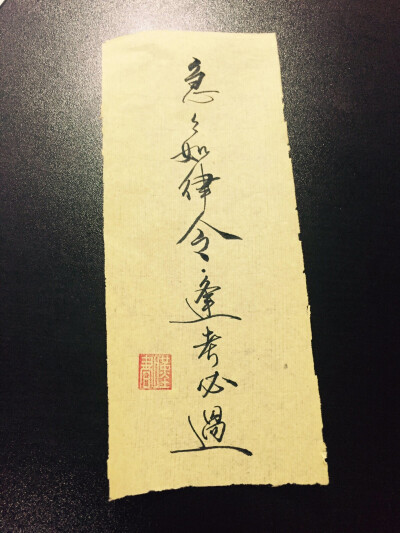 急々如律令·逢考必過